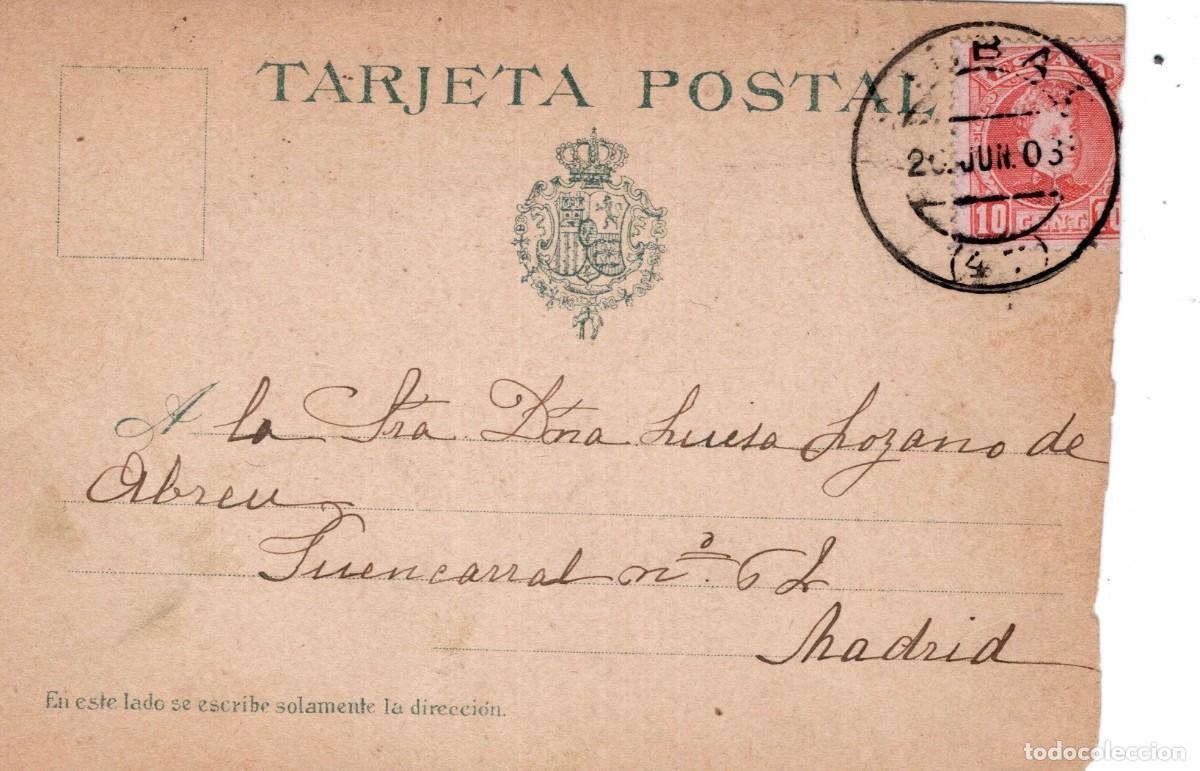 TARJETA POSTAL
BA
2 JUN. 03
10 CENT.
(4
A la Sra Dña Luisa Lozano de
Abreu
Fuencarral nº. 62
Madrid
En este lado se escribe solamente la dirección.
todocoleccion